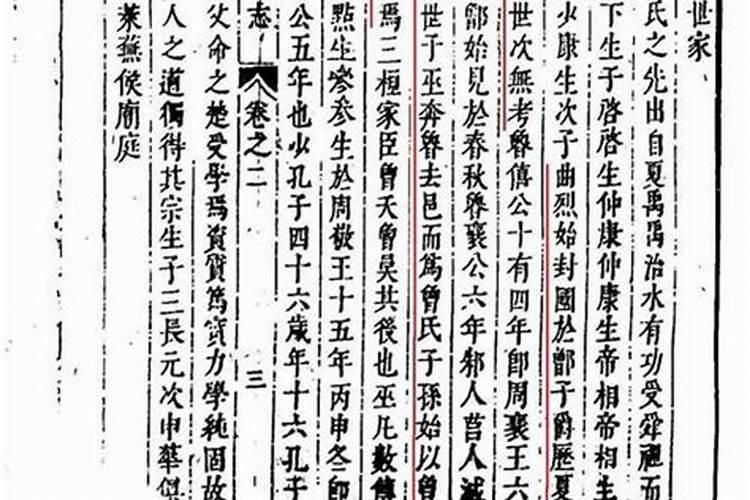 世家
氏之先出自夏禹禹治水有功受舜禪而
下生子啓啓生仲康仲康生帝相帝相生
少康生次子曲烈始封國於鄫子爵歷夏
世次無考魯僖公十有四年卽周襄王六
鄫始見於春秋魯襄公六年邾人莒人滅
世子巫奔魯去邑而爲曾氏子孫始以曾
爲三桓家臣曾夭曾昊其後也巫凡數傳
點生參參生於周敬王十五年丙申冬卽
公五年也少孔子四十六歲年十六孔子
志 卷之二 三
父命之楚受學焉資質篤實力學純固故
人之道獨得其宗生子三長元次申華
萊蕪侯廟庭